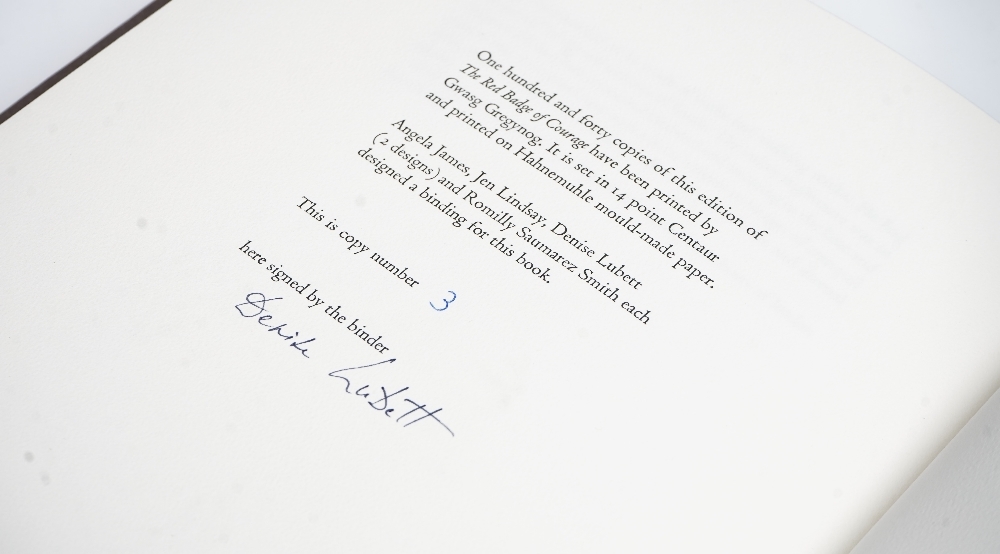 One hundred and forty copies of this edition of
The Red Badge of Courage have been printed by
Gwasg Gregynog. It is set in 14 point Centaur
and printed on Hahnemuhle mould-made paper.
Angela James, Jen Lindsay, Denise Lubett
(2 designs) and Romilly Saumarez Smith each
designed a binding for this book.
This is copy number 3
here signed by the binder
Denise Lubett